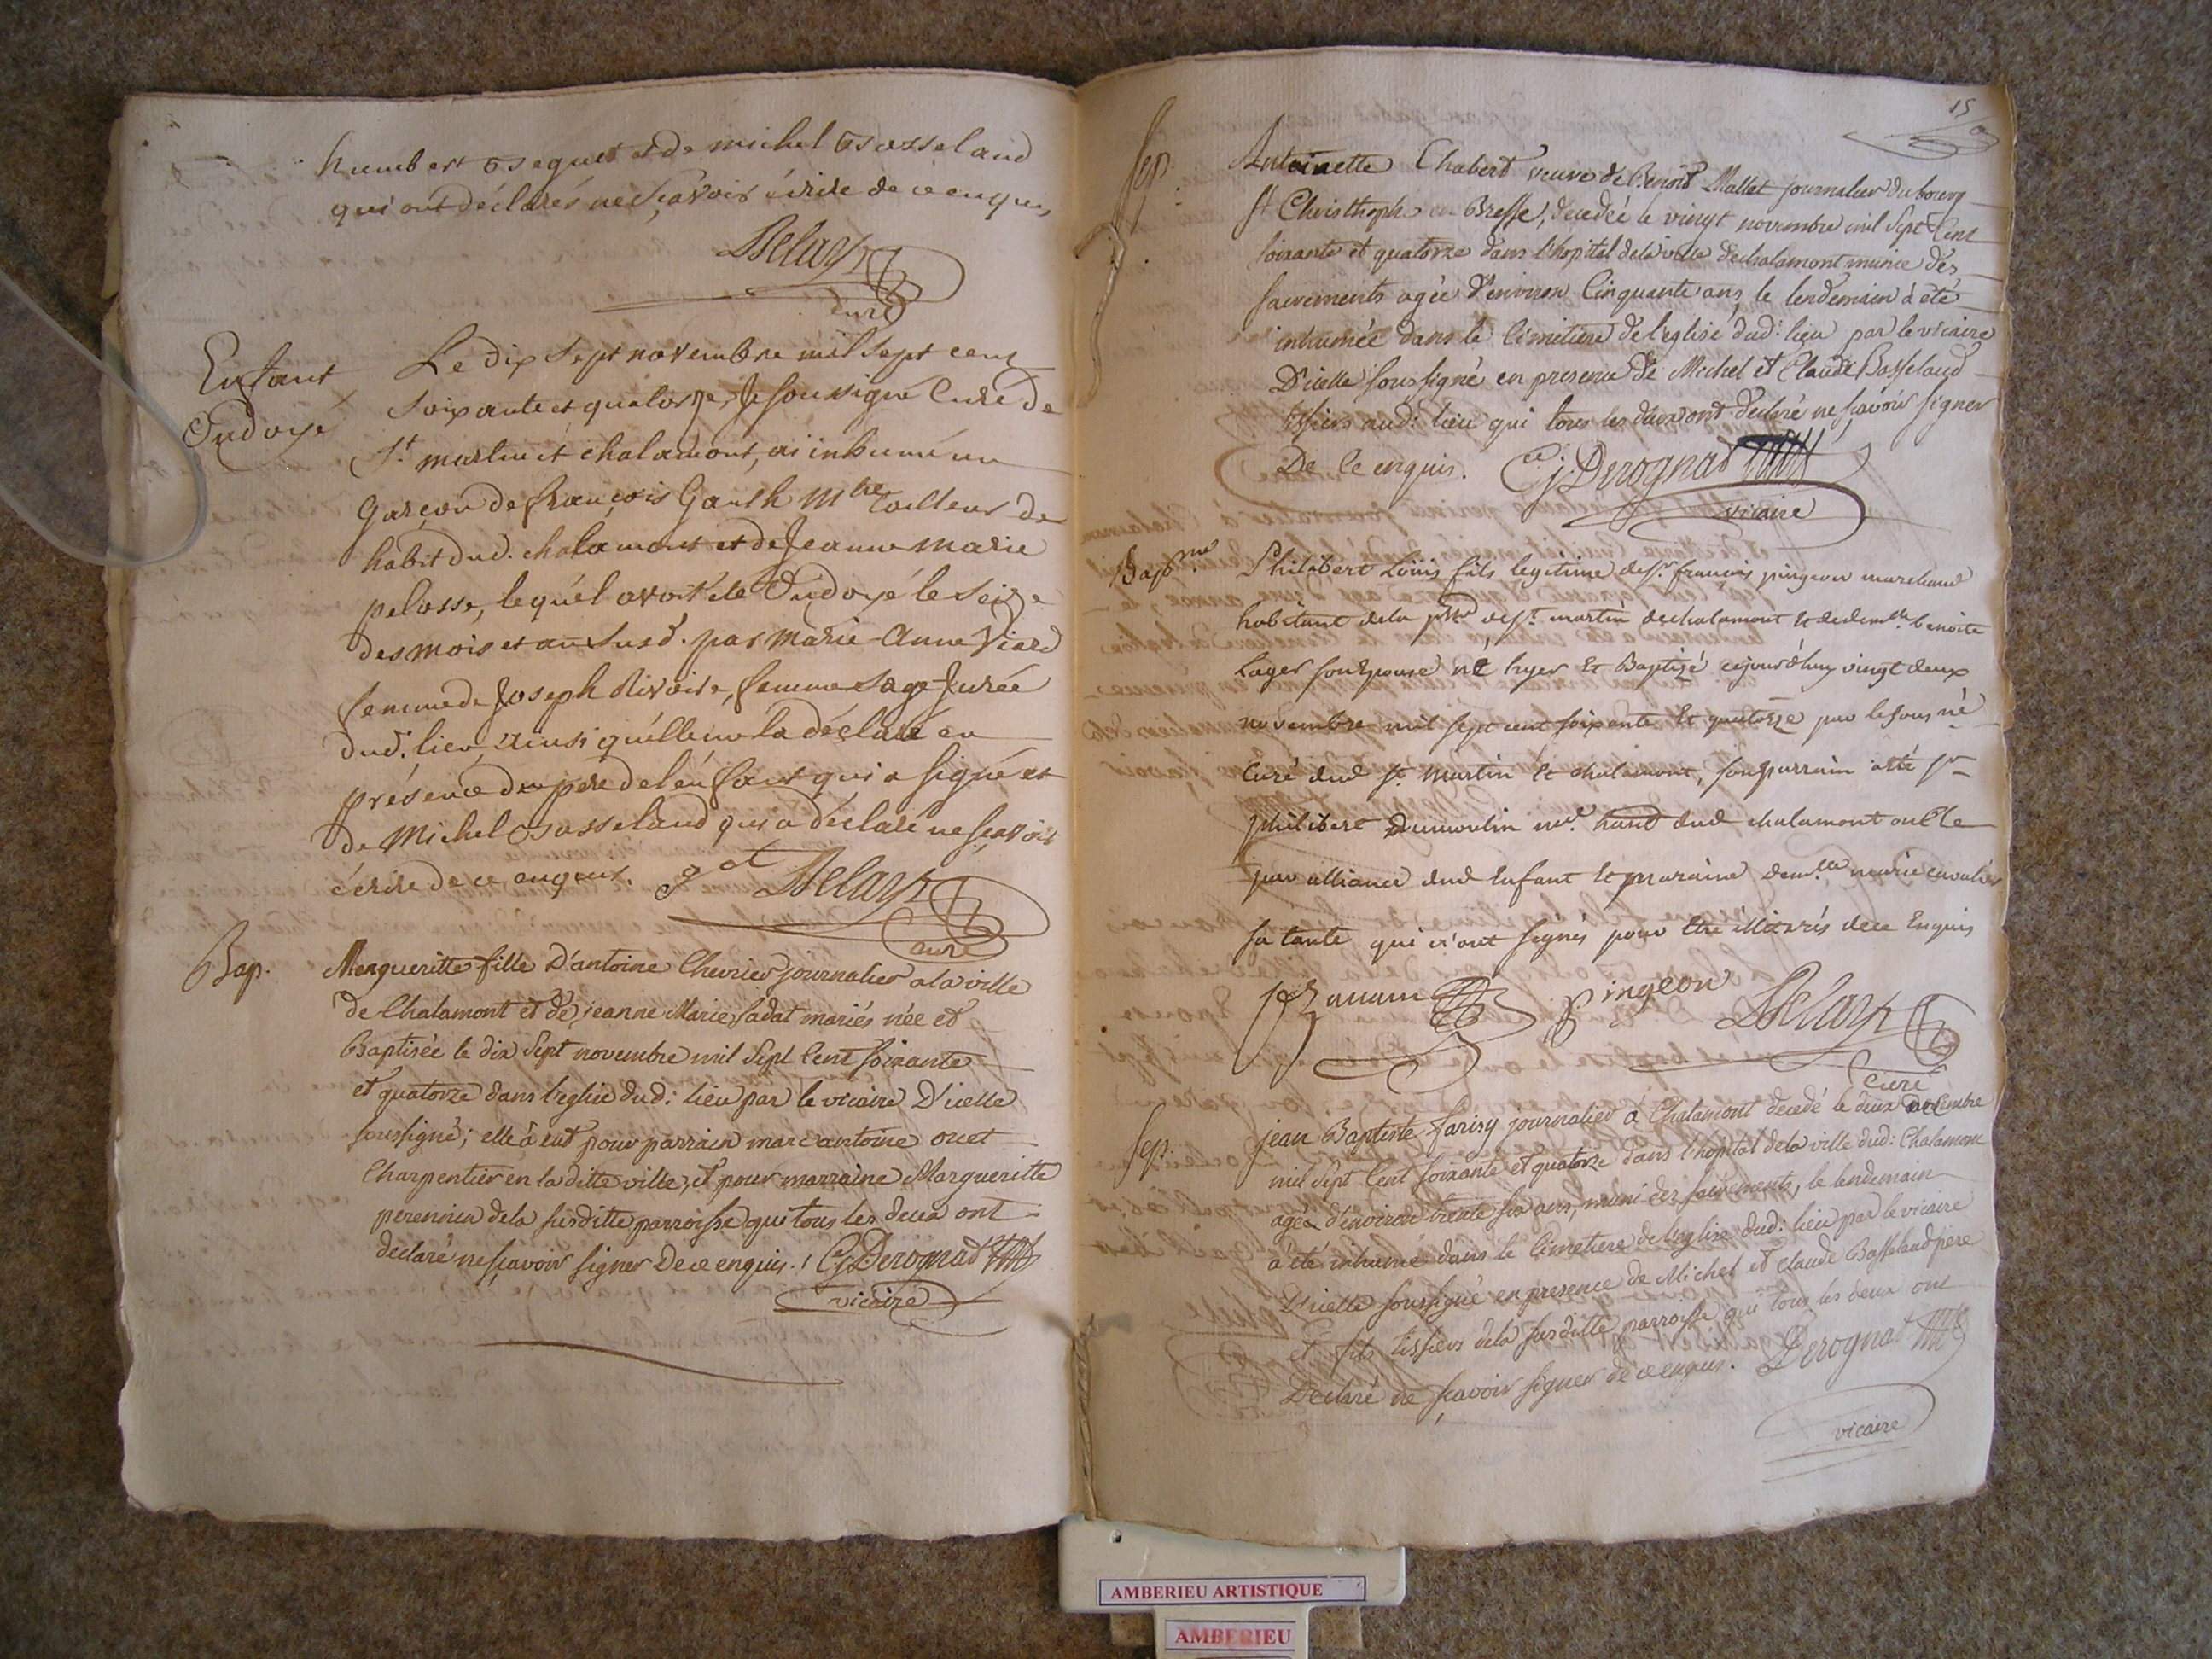 humbert Bseguet et de michel Basseland
qui ont déclarés ne sçavoir écrire de ce enquis,
Delaz
curé
Enfant
Ondoyé
Le dix sept novembre mil sept cent
soixante et quatorze, Je soussigné Curé de
St. martin et chalamont, ai inhumé un
garçon de françois Ganth Mtre tailleur de
habit dud. chalamont et de Jeanne marie
pelosse, lequel avoit été Ondoyé le Seize
des mois et an susd. par marie-Anne Viard
femme de Joseph Rivoire, femme sage-Jurée
dud. lieu, ainsi qu'elle me la déclaré en
présence du pere de l'enfant qui a signé et
de Michel Basseland qui a déclaré ne sçavoir
écrire de ce enquis. Delaz
curé
Bap.
Margueritte fille D'antoine Chevrier journalier a la ville
de Chalamont et de jeanne Marie Sadat mariés née et
Baptisée le dix sept novembre mil sept Cent soixante
et quatorze dans l'eglise dud: lieu par le vicaire D'icelle
soussigné; elle à eut pour parrain marc antoine ouet
Charpentier en la ditte ville, et pour marraine Margueritte
perennien de la susditte parroisse qui tous les deux ont
declaré ne sçavoir signer De ce enquis. CJ Derognat
vicaire
15
Sep.
Antoinette Chabert veuve de Benoit Mallet journalier du bourg
St Christhophe en Bresse, decedée le vingt novembre mil sept Cent
soixante et quatorze dans l'hopital de la ville de chalamont munie des
sacrements agée d'environ Cinquante ans, le lendemain à été
inhumée dans le Cimetiere de l'eglise dud: lieu par le vicaire
D'icelle soussigné en presence de Michel et Claude Basseland
tissiers aud: lieu qui tous les deux ont declaré ne sçavoir signer
De Ce enquis. CJ. Derognat
vicaire
Bapme
Philibert Loüis fils legitime de sr. francois pingeon marchand
habitant de la psse de st. martin de chalamont et de demlle benoite
Lager son Epouse né hyer Et Baptizé cejourd'huy vingt deux
novembre mil sept cent soixante Et quatorze par le sous né
Curé dud st. Martin Et chalamont, son parrain a été sr
philibert Dumoulin md. dud chalamont oncle
par alliance dud Enfant Et maraine demlle marie cavalier
sa tante qui n'ont signés pour Etre illiterés de ce Enquis
pingeon Delaz
Curé
Sep.
jean Baptiste Farisy journalier à Chalamont decedé le deux decembre
mil sept Cent soixante et quatorze dans l'hopital de la ville dud: Chalamont
agée d'environ trente six ans, muni des sacrements, le lendemain
à été inhumé dans le Cimetiere de l'eglise dud: lieu par le vicaire
D'icelle soussigné en presence de Michel et claude Basseland pere
et fils tissiers de la susditte parroisse qui tous les deux ont
Declaré ne sçavoir signer de ce enquis. Derognat
vicaire
AMBERIEU ARTISTIQUE
AMBERIEU